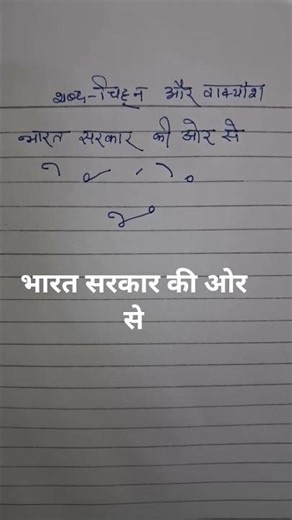 शब्द-चिह्न और वाक्यांश
भारत सरकार की ओर से
भारत सरकार की ओर
से